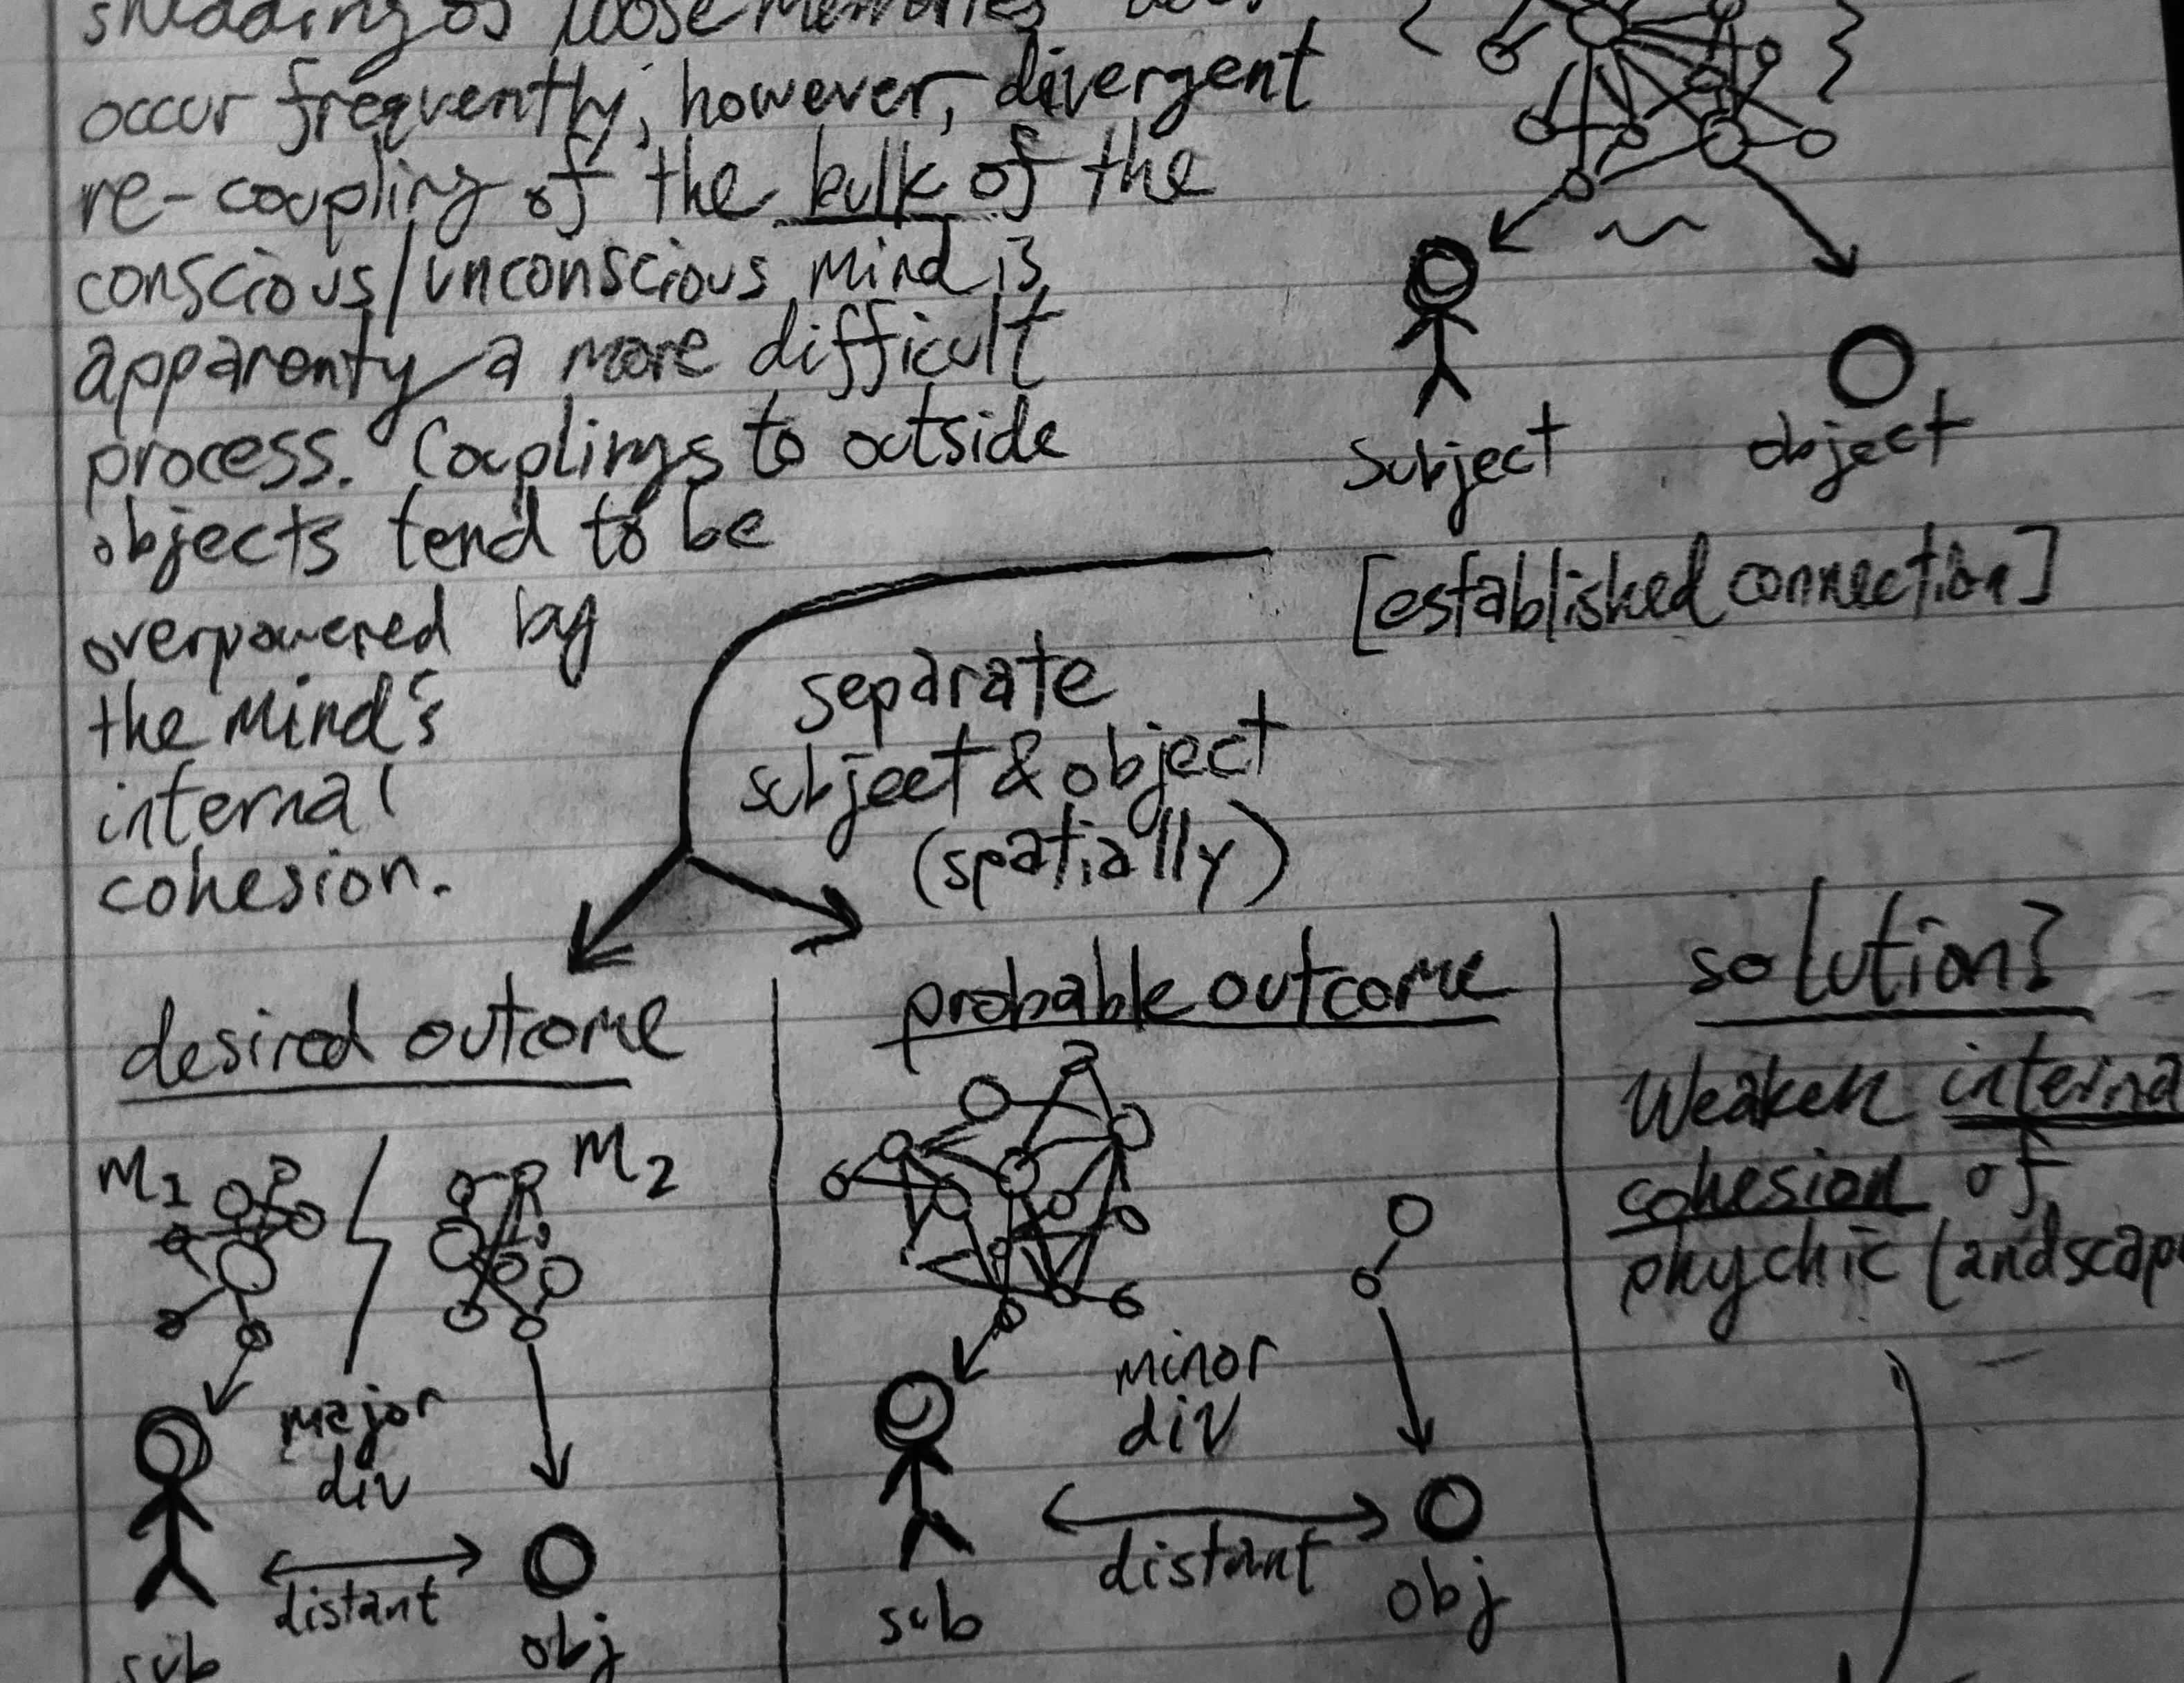 shedding of loose memories does
occur frequently; however, divergent
re-coupling of the bulk of the
conscious/unconscious mind is
apparenty a more difficult
process. Couplings to outside
objects tend to be
overpowered by
the mind's
internal
cohesion.
subject
object
[established connection]
separate
subject & object
(spatially)
desired outcome
M1
M2
major
div
distant
sub
obj
probable outcome
minor
div
distant
sub
obj
solution?
Weaken interna
cohesion of
phychic landscap